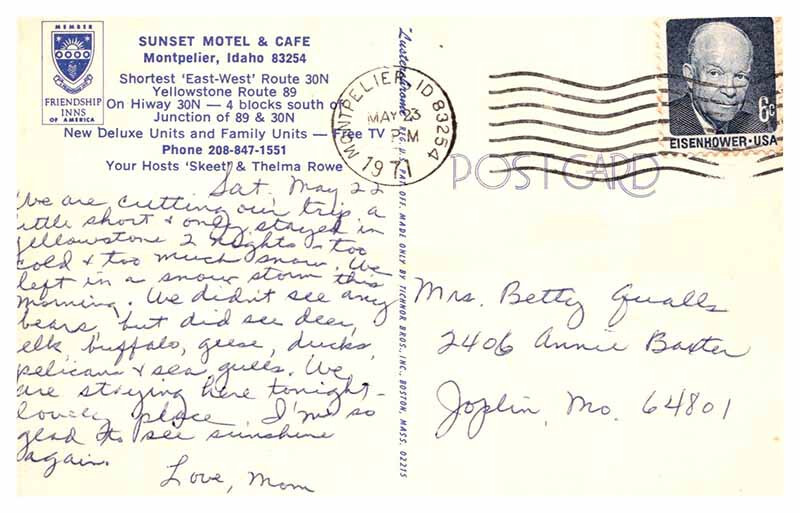 MEMBER
FRIENDSHIP
INNS
OF AMERICA
SUNSET MOTEL & CAFE
Montpelier, Idaho 83254
Shortest 'East-West' Route 30N
Yellowstone Route 89
On Hiway 30N — 4 blocks south of
Junction of 89 & 30N
New Deluxe Units and Family Units — Free TV
Phone 208-847-1551
Your Hosts 'Skeet' & Thelma Rowe
Sat. May 22
We are cutting our trip a
little short & only stayed in
Yellowstone 2 nights - too
cold & too much snow. We
left in a snow storm this
morning. We didn't see any
bears, but did see deer,
elk, buffalo, geese, ducks,
pelicans & sea gulls. We
are staying here tonight -
lovely place. I'm so
glad to see sunshine
again.
Love, Mom
Lusterchrome REG. U.S. PAT. OFF. MADE ONLY BY TICHNOR BROS., INC., BOSTON, MASS. 02215
MONTPELIER, ID 83254
MAY 23
PM
1971
6c
EISENHOWER·USA
POST CARD
Mrs. Betty Qualls
2406 Annie Baxter
Joplin, Mo. 64801